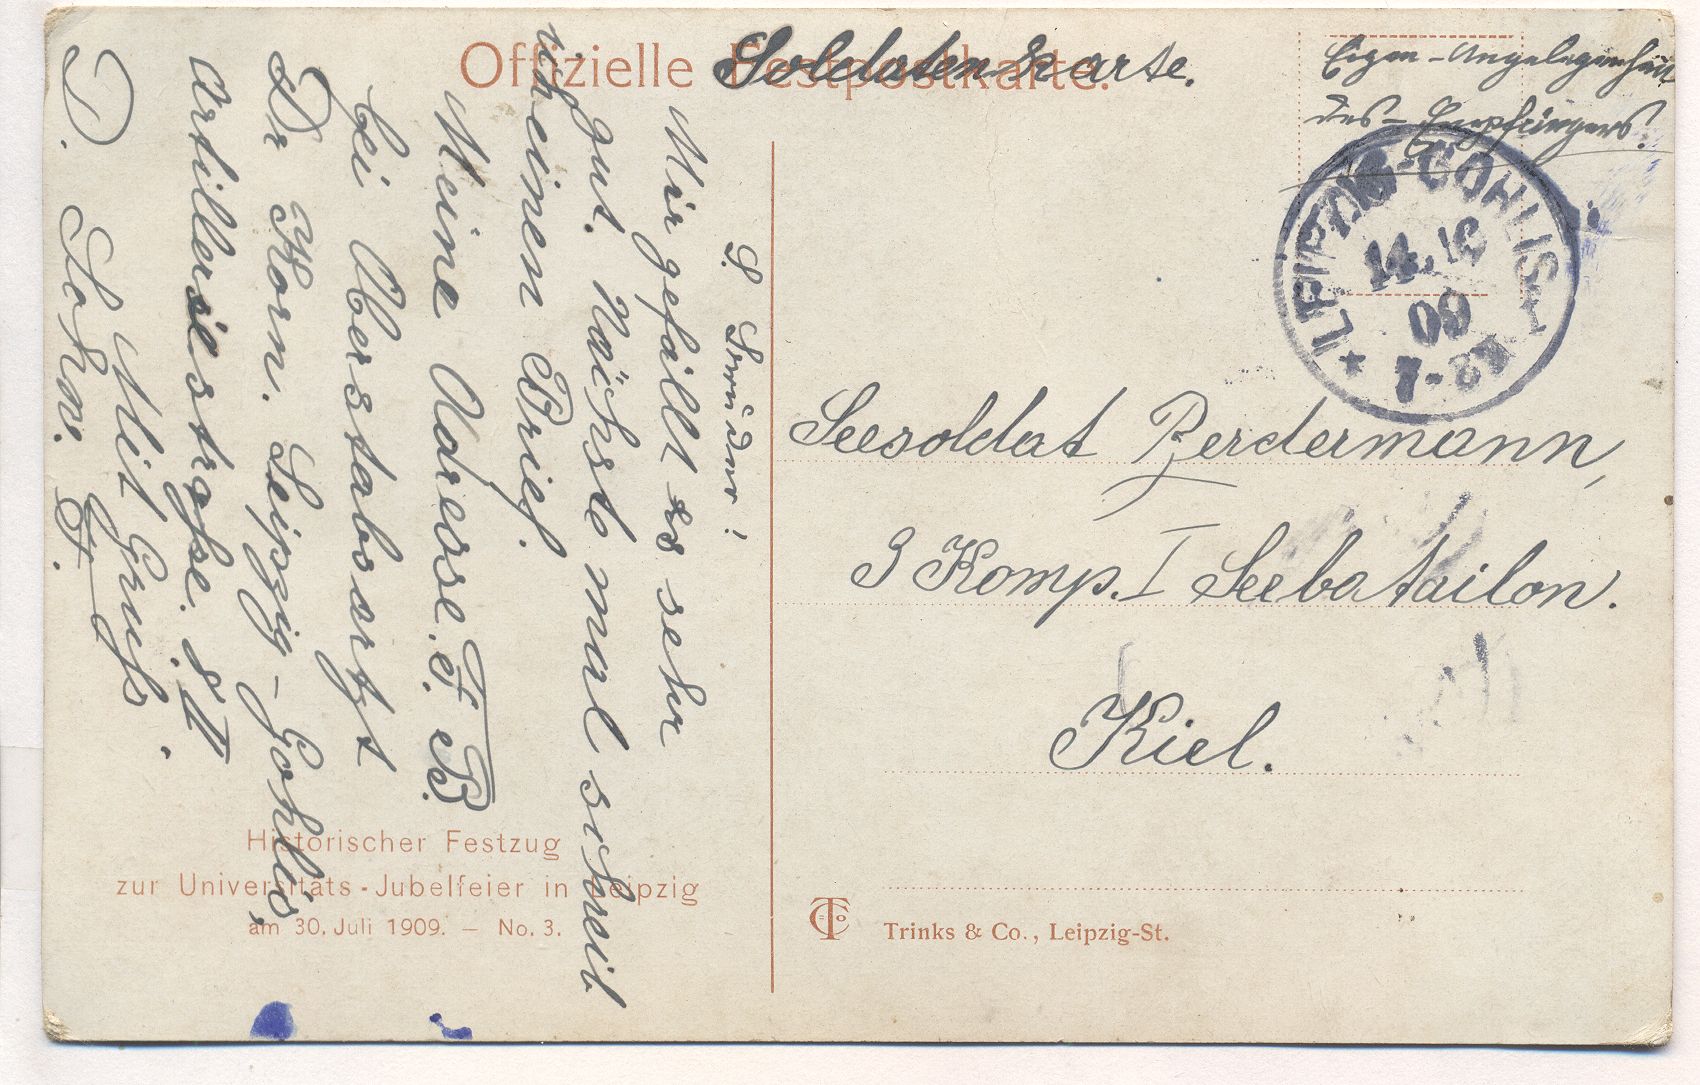 Offizielle Festpostkarte.
Soldaten Karte.
Eigen-Angelegenheit
des Empfängers.
LEIPZIG-GOHLIS
14.10
09
Seesoldat Berdermann,
3 Komp. I Seebatailon.
Kiel.
Trinks & Co., Leipzig-St.
L.
Mir gefällt es sehr
gut. Nächste mal schreib
ich einen Brief.
Meine Adresse. F. B.
bei Oberstabsarzt
Dr Korn. Leipzig-Gohlis,
Artilleriestraße. 8 II
Mit Gruß.
D.
Historischer Festzug
zur Universitäts-Jubelfeier in Leipzig
am 30. Juli 1909. — No. 3.